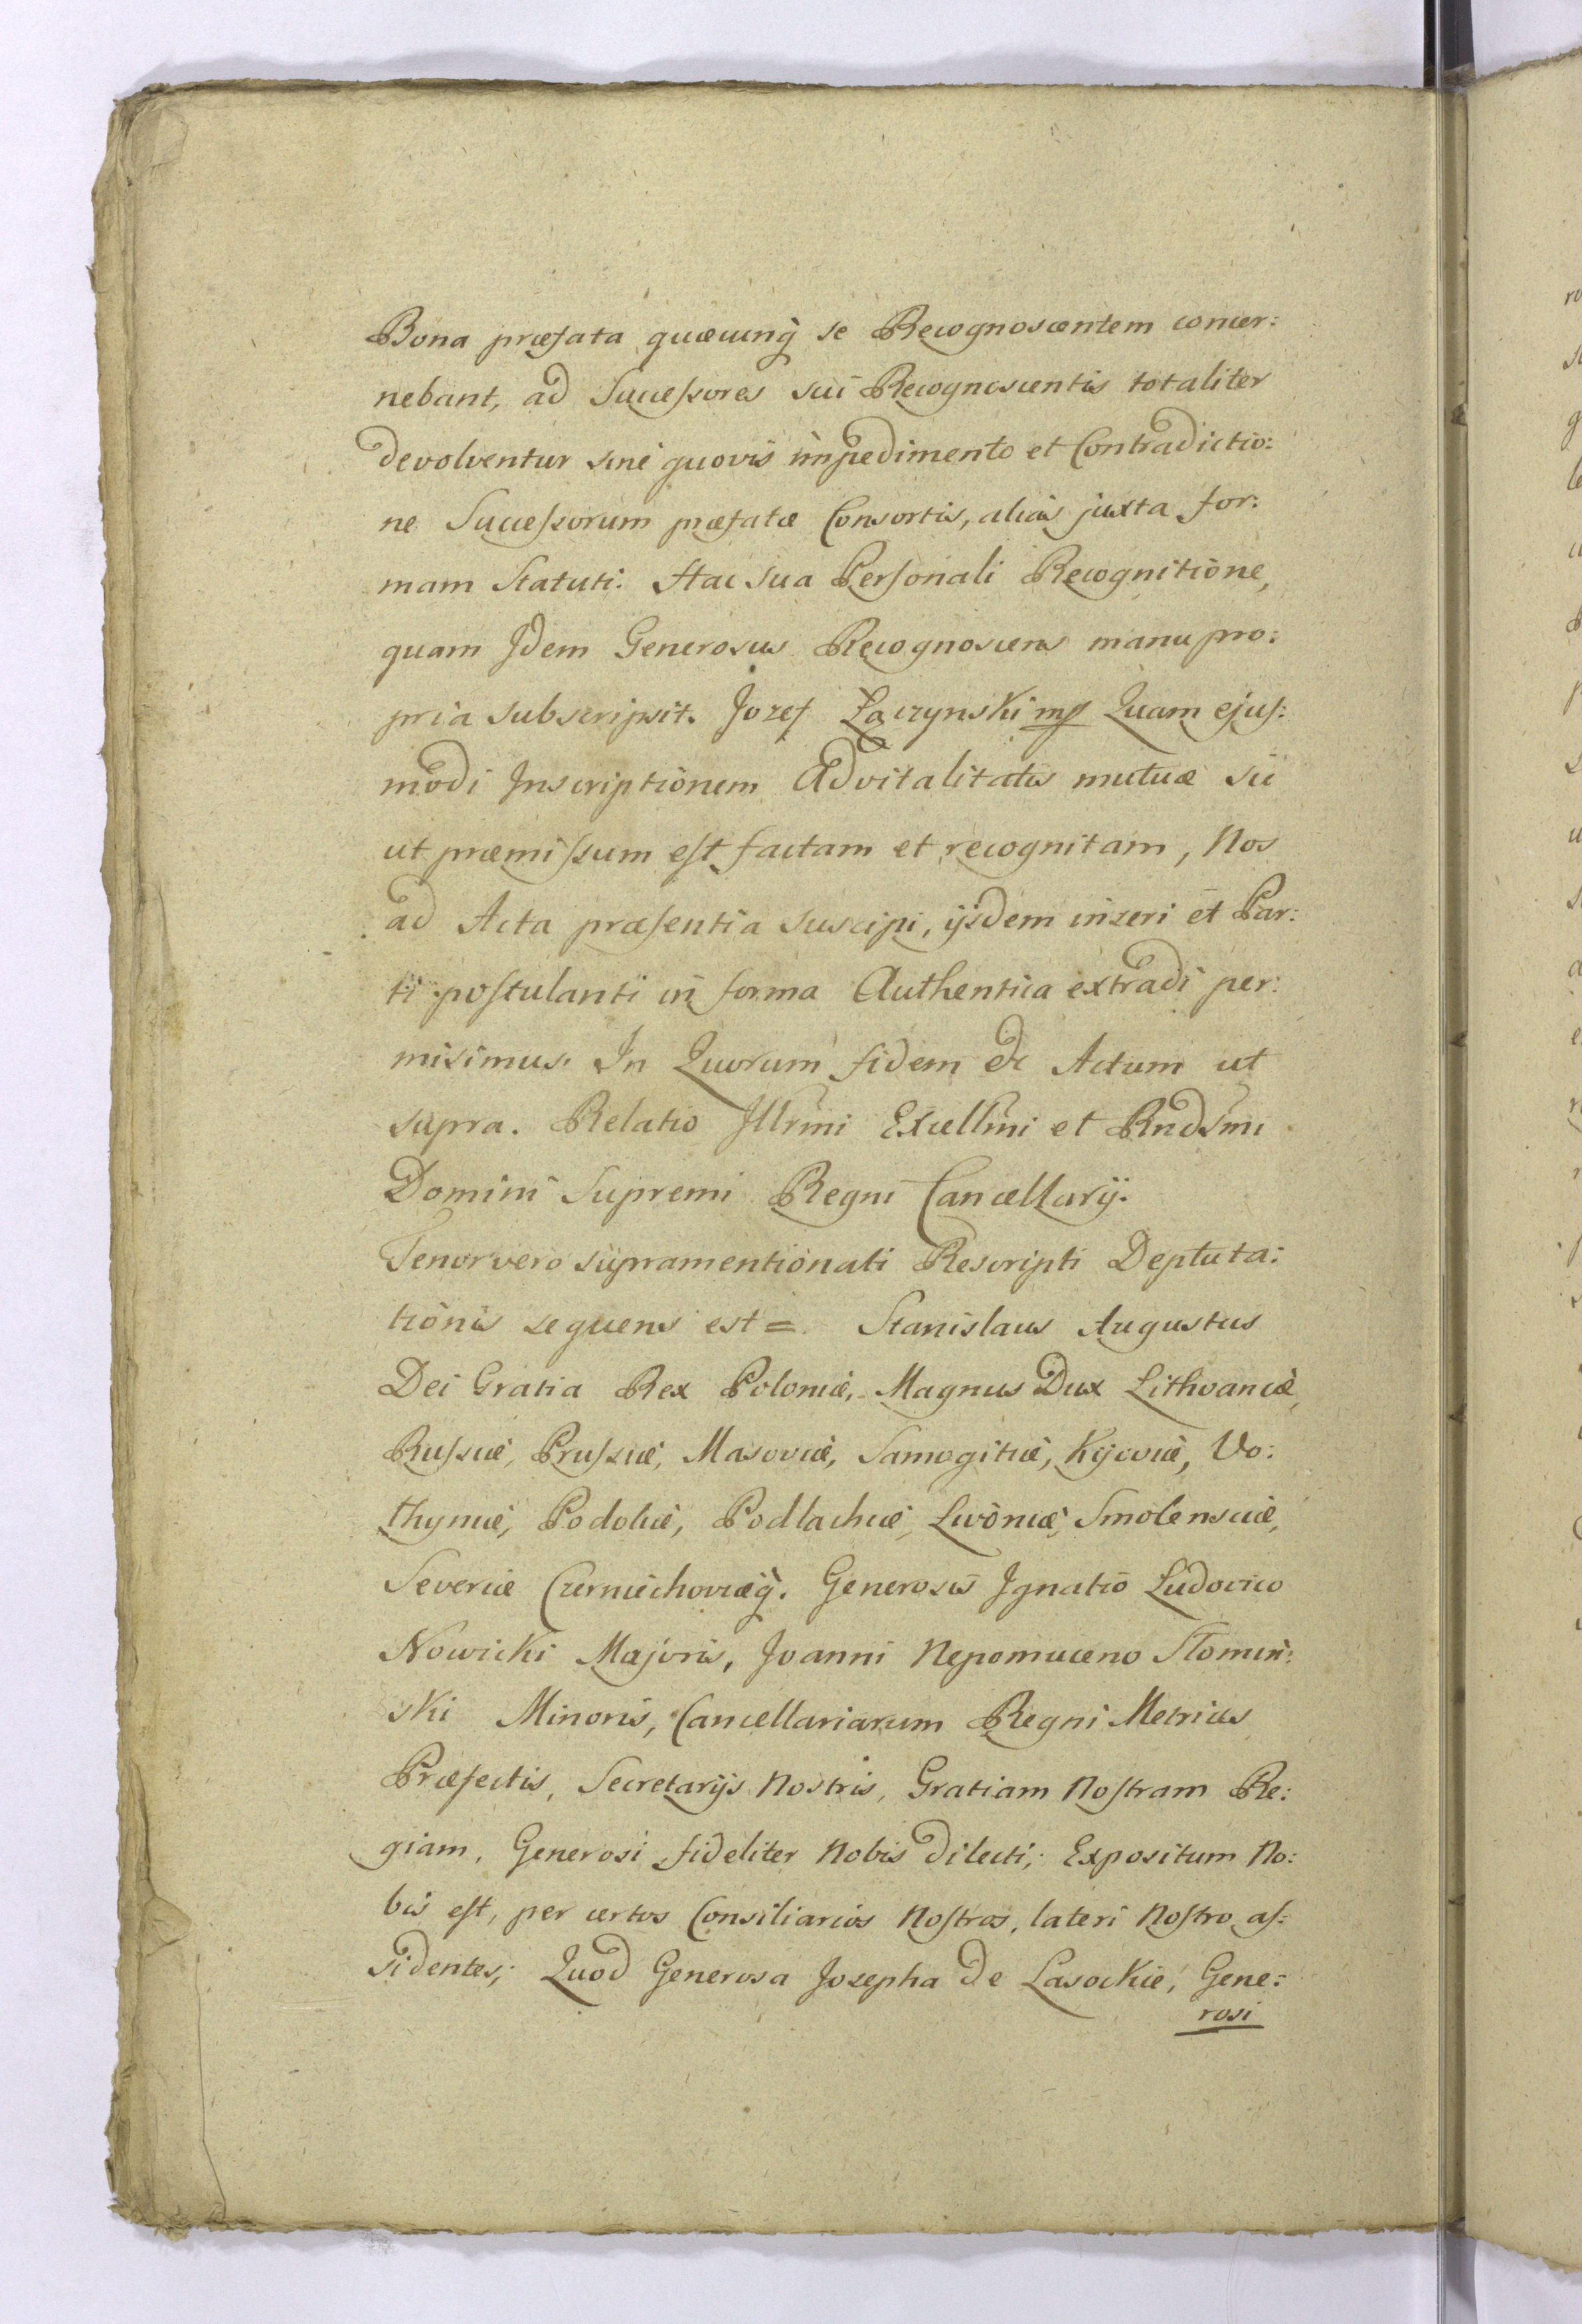 Bona præfata quæcunq́ se Recognoscentem concer:
nebant, ad Successores sui Recognoscentis totaliter
devolventur sine quovis impedimento et Contradictio:
ne Successorum præfatæ Consortis, alias juxta for:
mam Statuti. Hac sua Personali Recognitione,
quam Idem Generosus Recognoscens manu pro:
pria subscripsit. Jozef Łączynski mp Quam ejus:
modi Inscriptionem Advitalitatis mutuæ sic
ut præmissum est factam et recognitam, Nos
ad Acta præsentia suscipi, ijsdem inseri et Par:
ti postulanti in forma Authentica extradi per:
misimus. In Quorum fidem &c Actum ut
supra. Relatio Illrmi Excellmi et Rndsmi
Domini Supremi Regni Cancellarij.
Tenor vero supramentionati Rescripti Deptuta:
tionis sequens est = Stanislaus Augustus
Dei Gratia Rex Poloniæ, Magnus Dux Lithvaniæ,
Russiæ, Prussiæ, Masoviæ, Samogitiæ, Kijoviæ, Vo:
lhyniæ, Podoliæ, Podlachiæ, Livoniæ, Smolensciæ,
Severiæ Czerniechoviæq́. Generosis Ignatio Ludovico
Nowicki Majoris, Joanni Nepomuceno Słomiń:
ski Minoris, Cancellariarum Regni Metrices
Præfectis, Secretarijs Nostris, Gratiam Nostram Re:
giam. Generosi fideliter Nobis dilecti; Expositum No:
bis est, per certos Consiliarios Nostros, lateri Nostro as:
sidentes; Quod Generosa Josepha de Lasockie, Gene:
rosi